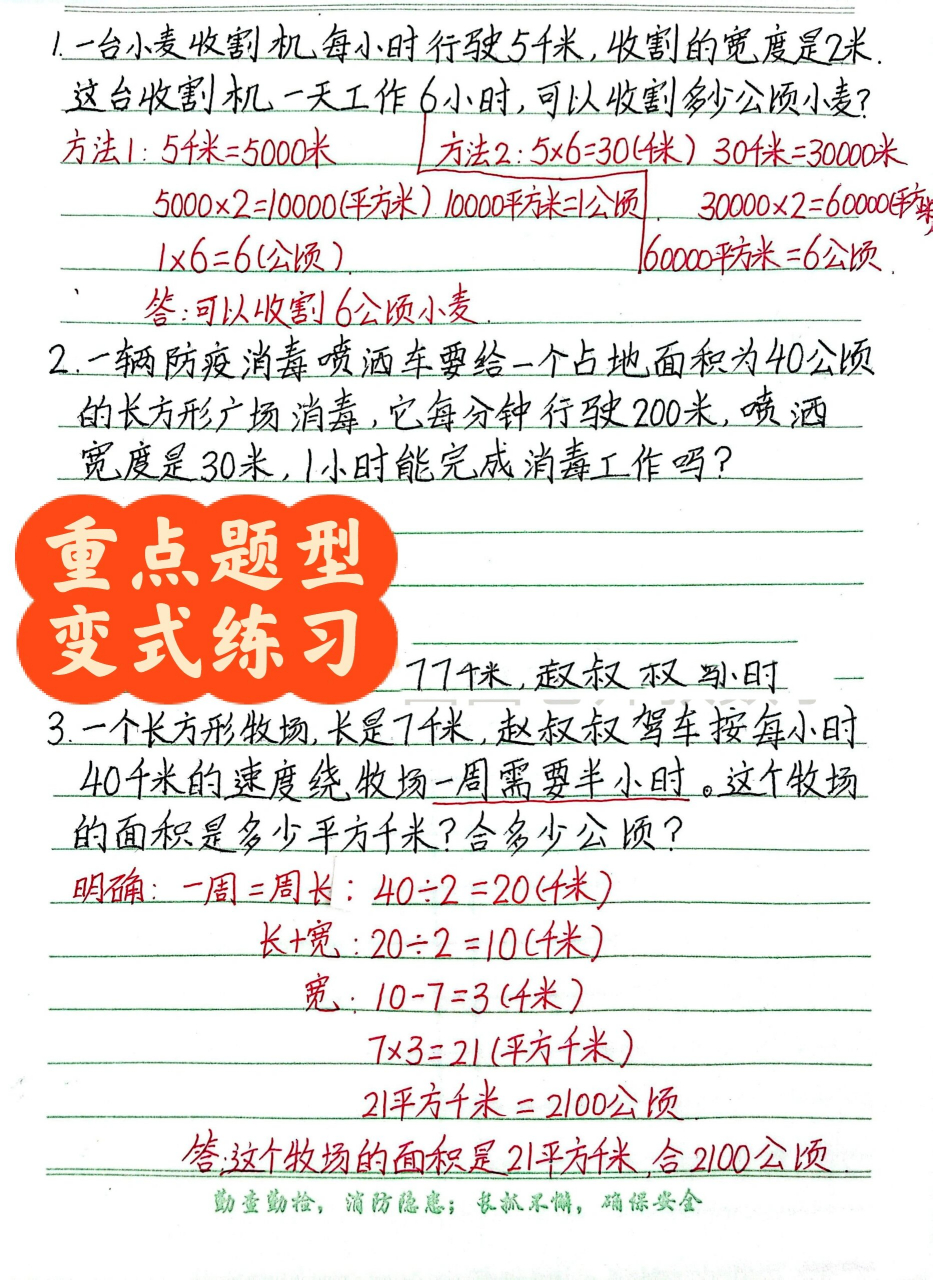 1.一台小麦收割机每小时行驶5千米,收割的宽度是2米.
这台收割机一天工作6小时,可以收割多少公顷小麦?
方法1:5千米=5000米 方法2:5×6=30(千米) 30千米=30000米
5000×2=10000(平方米) 10000平方米=1公顷 30000×2=60000(平方米)
1×6=6(公顷) 60000平方米=6公顷.
答:可以收割6公顷小麦.
2.一辆防疫消毒喷洒车要给一个占地面积为40公顷
的长方形广场消毒,它每分钟行驶200米,喷洒
宽度是30米,1小时能完成消毒工作吗?
重点题型
变式练习
77千米,赵叔叔 小时
3.一个长方形牧场,长是7千米,赵叔叔驾车按每小时
40千米的速度绕牧场一周需要半小时。这个牧场
的面积是多少平方千米?合多少公顷?
明确:一周=周长:40÷2=20(千米)
长+宽:20÷2=10(千米)
宽:10-7=3(千米)
7×3=21(平方千米)
21平方千米=2100公顷
答:这个牧场的面积是21平方千米,合2100公顷.
勤查勤检,消防隐患;长抓不懈,确保安全